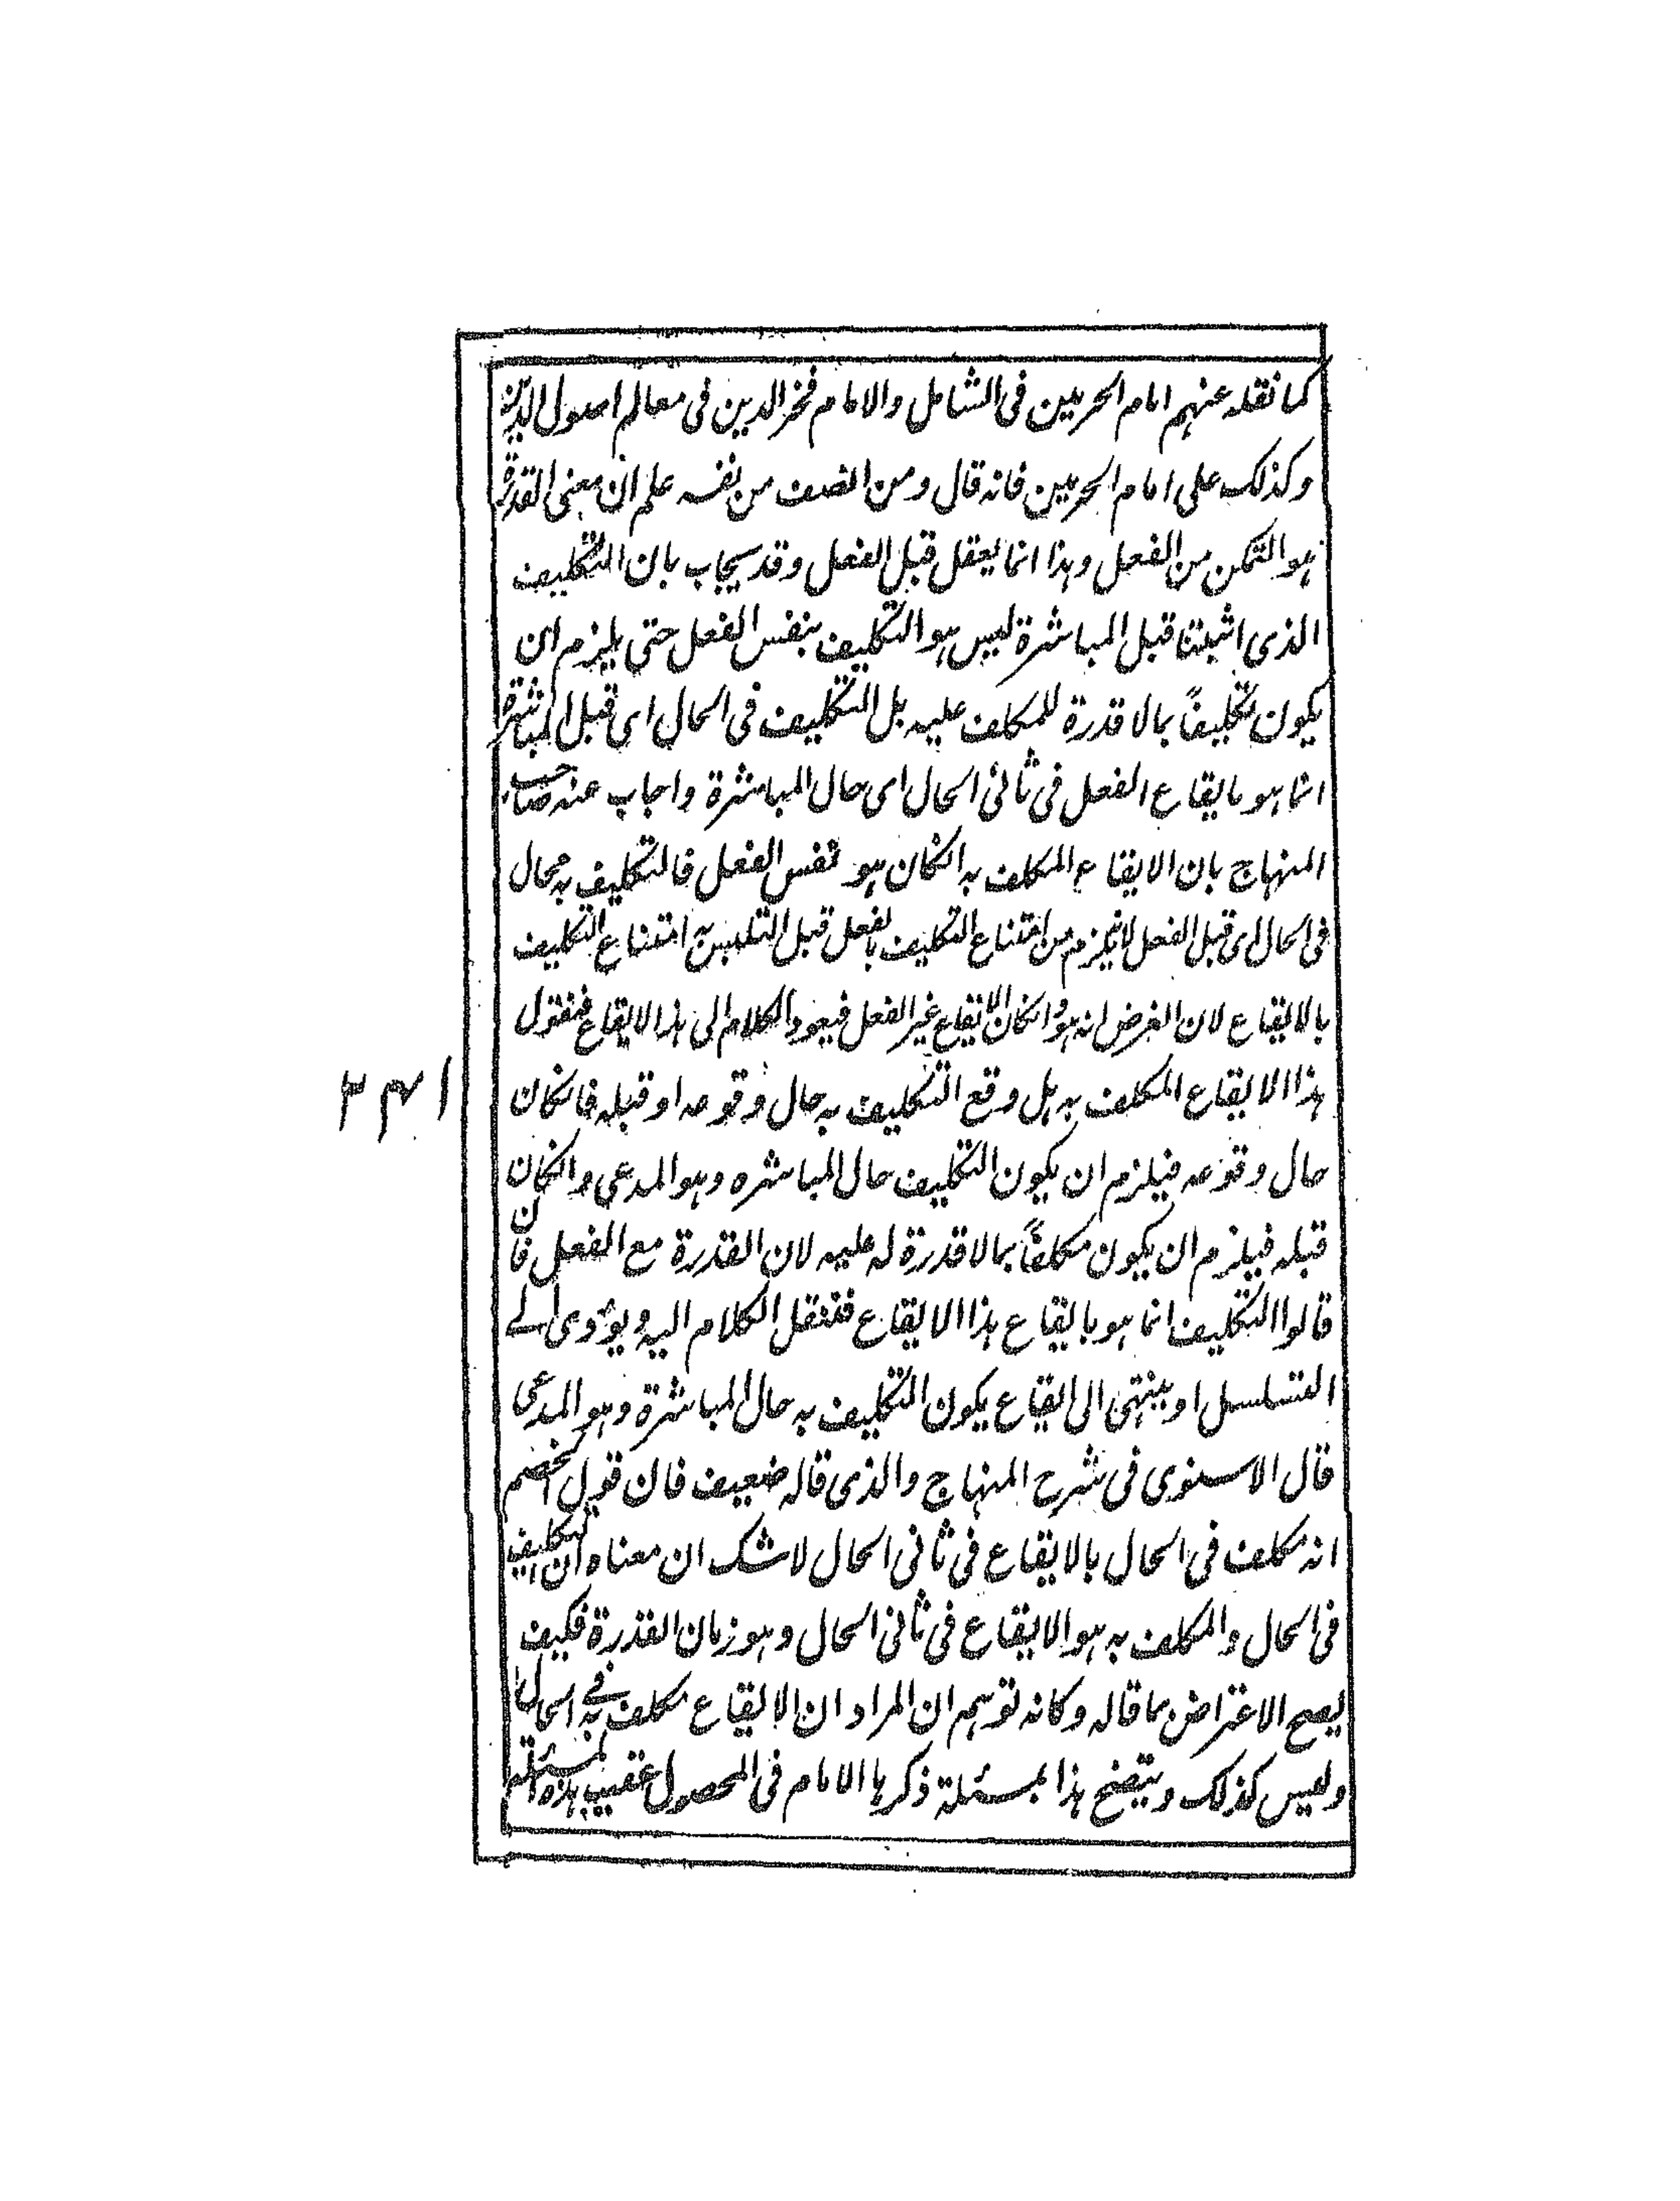 كما نقله عنهم امام الحرمين فى الشامل والامام فخر الدين فى معالم اصول الدين
وكذلك على امام الحرمين فانه قال ومن انصف من نفسه علم ان معنى القدرة
هو التمكن من الفعل وهذا انما يعقل قبل الفعل وقد يجاب بان التكليف
الذى اثبتنا قبل المباشرة ليس هو التكليف بنفس الفعل حتى يلزم ان
يكون تكليفاً بما لا قدرة للمكلف عليه بل التكليف فى الحال اى قبل المباشرة
انما هو بايقاع الفعل فى ثانى الحال اى حال المباشرة واجاب عنه صاحب
المنهاج بان الايقاع المكلف به انكان هو نفس الفعل فالتكليف به محال
فى الحال اى قبل الفعل لانه يلزم من امتناع التكليف بالفعل قبل التلبس به امتناع التكليف
بالايقاع لان الفرض انه هو وانكان الايقاع غير الفعل فيعود الكلام الى هذا الايقاع فنقول
هذا الايقاع المكلف به هل وقع التكليف به حال وقوعه او قبله فانكان
حال وقوعه فيلزم ان يكون التكليف حال المباشره وهو المدعى وانكان
قبله فيلزم ان يكون مكلفاً بما لا قدرة له عليه لان القدرة مع الفعل فان
قالوا التكليف انما هو بايقاع هذا الايقاع فننقل الكلام اليه ويؤدى الے
التسلسل او ينتهى الى ايقاع يكون التكليف به حال المباشرة وهو المدعى
قال الاسنوى فى شرح المنهاج والذى قاله ضعيف فان قول الخصم
انه مكلف فى الحال بالايقاع فى ثانى الحال لاشك ان معناه ان التكليف
فى الحال والمكلف به هو الايقاع فى ثانى الحال وهو زمان القدرة فكيف
يصح الاعتراض بما قاله وكانه توهم ان المراد ان الايقاع مكلف به فے الحال
وليس كذلك ويتضح هذا بمسئلة ذكرها الامام فى المحصول عقيب هذه المسئلة